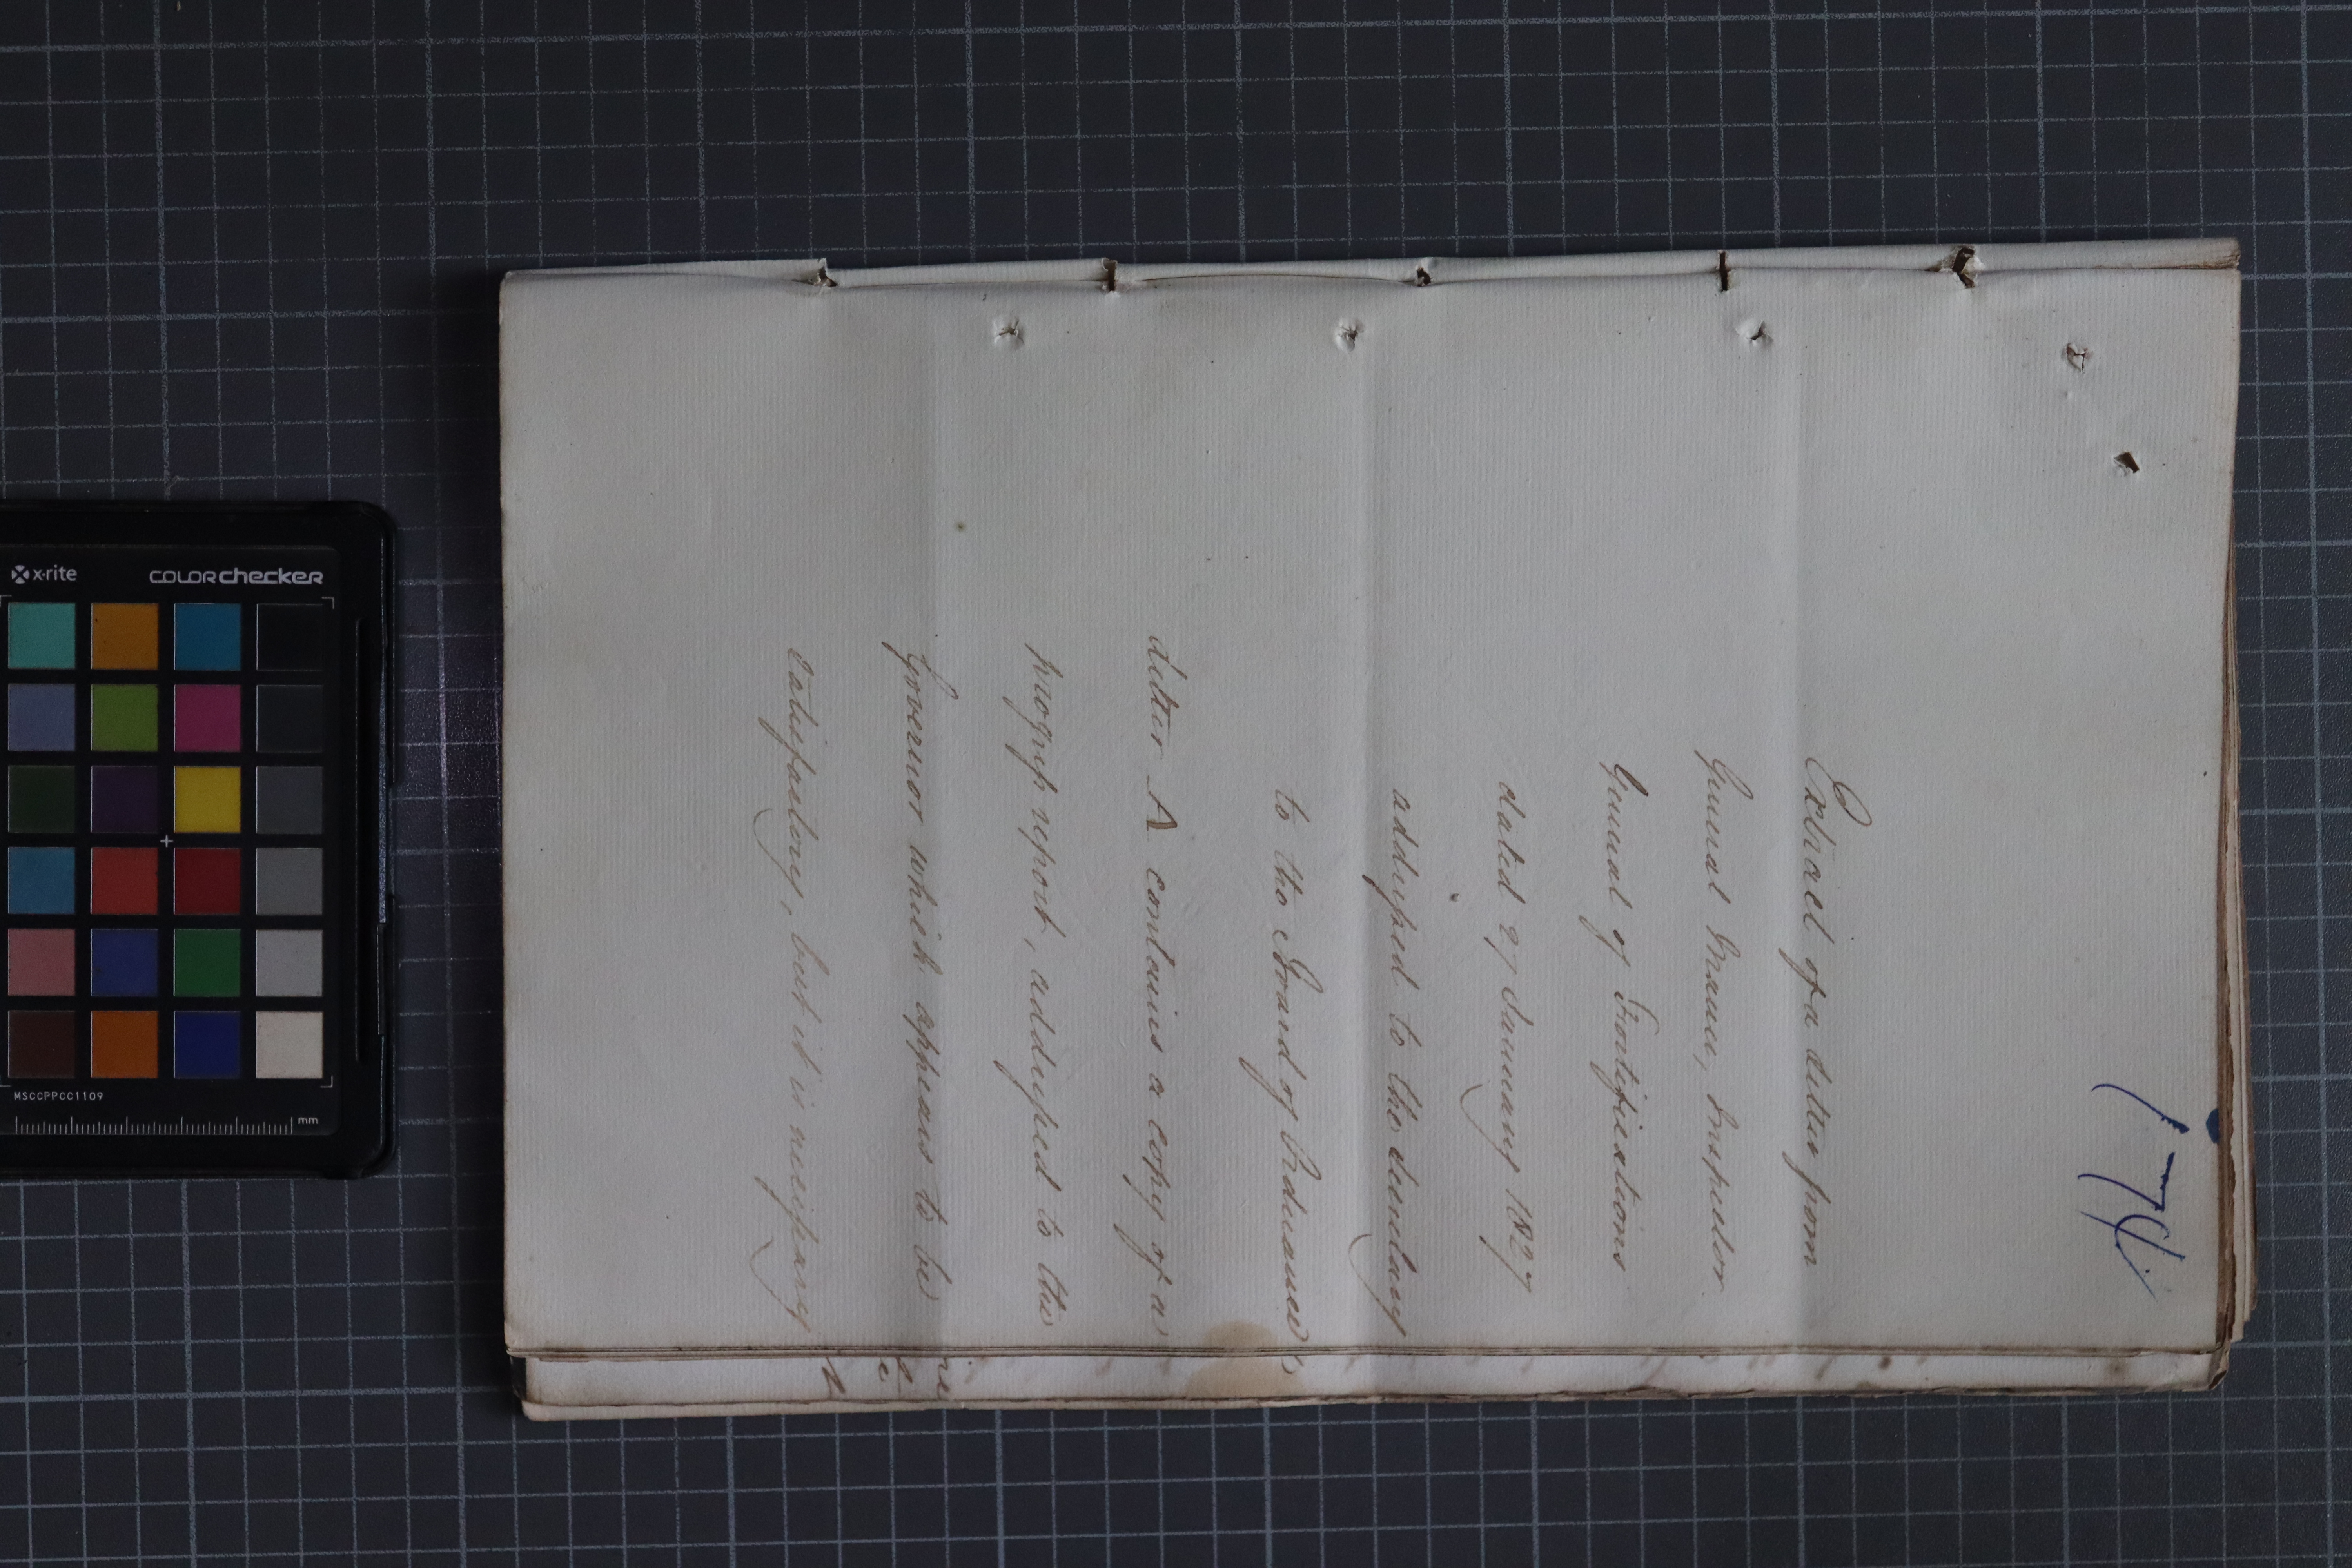 174
Extract of a Letter from
General Mann, Inspector
General of Fortifications
dated 27 January 1827
addressed to the Secretary
to the Board of Ordnance
Letter A contains a copy of a
progress report, addressed to the
Governor which appears to be
satisfactory, but it is necessary
x-rite
colorchecker
MSCCPPCC1109
mm